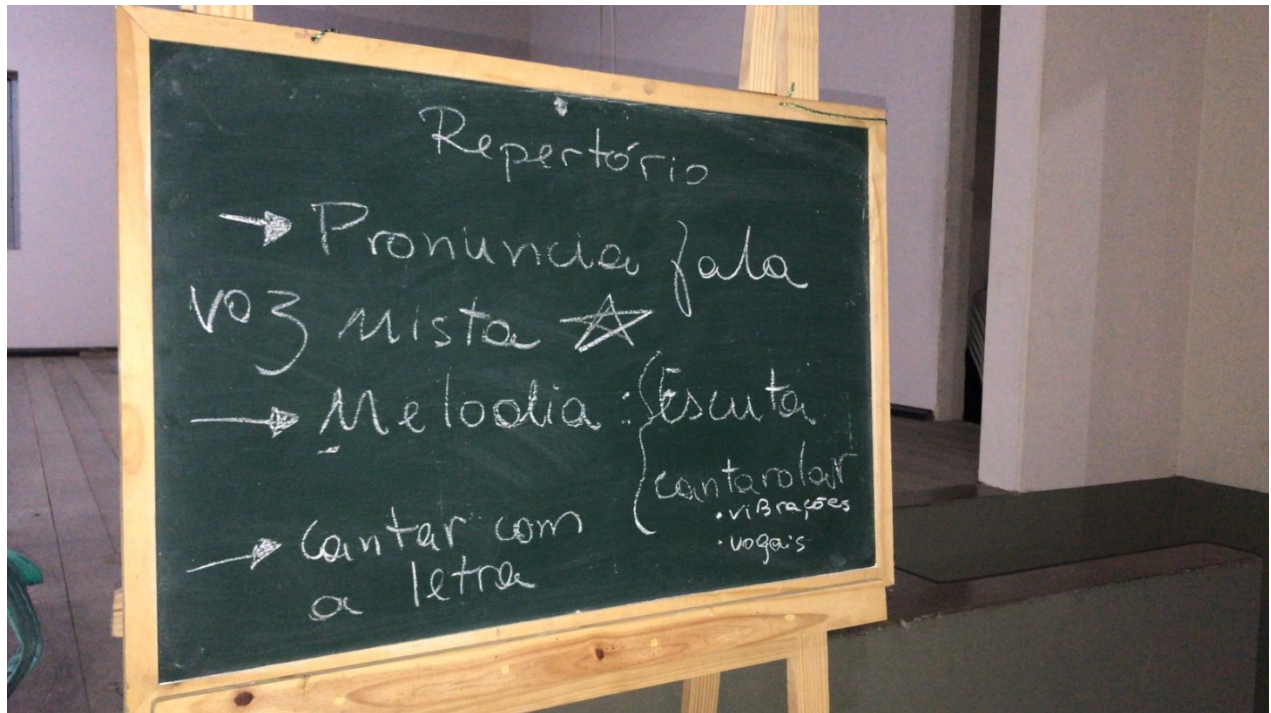 Repertório
→ Pronuncia fala
voz mista ☆
→ Melodia: { Escuta
cantarolar
• viBrações
• vogais
→ Cantar com
a letra